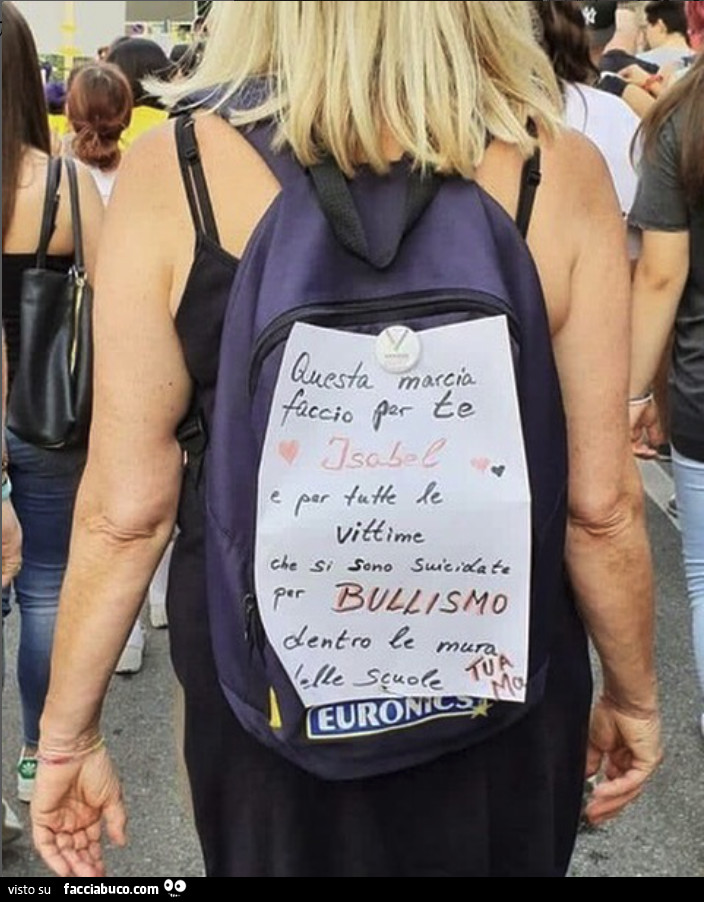 Questa marcia
faccio per te
Isabel
e per tutte le
vittime
che si sono suicidate
per BULLISMO
dentro le mura
delle scuole
TUA
EURONICS
visto su facciabuco.com